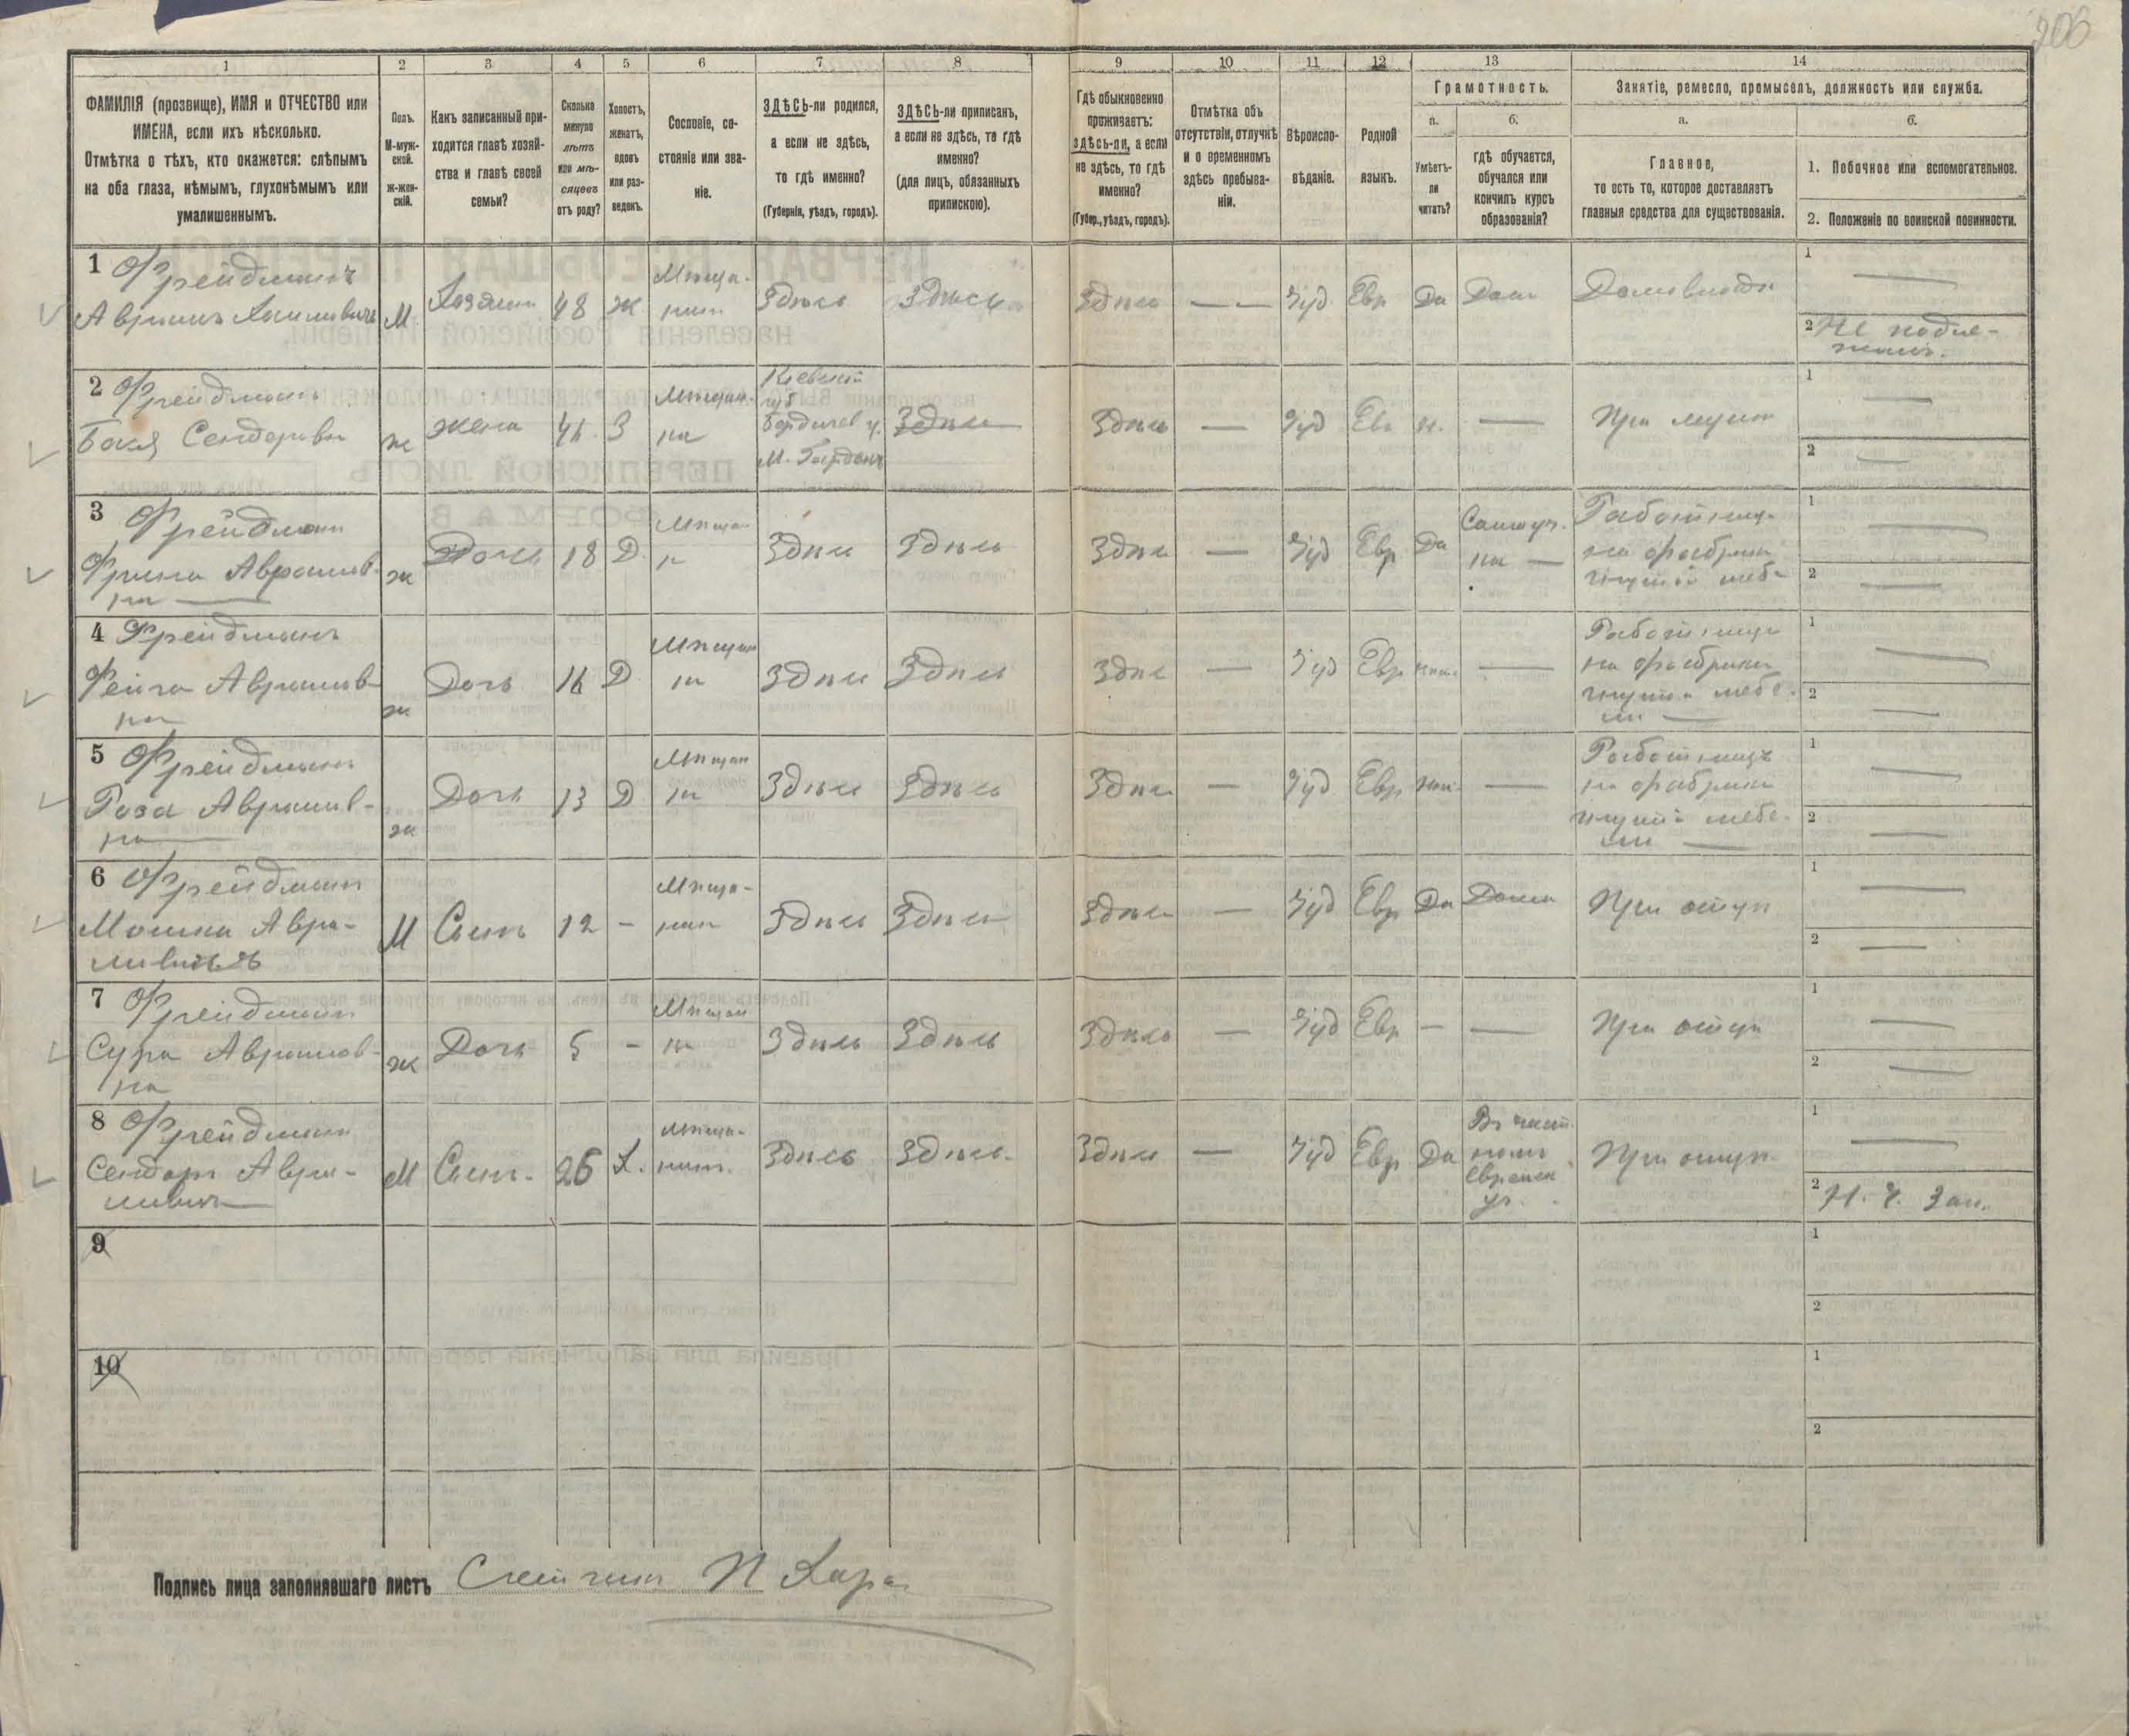 206
1 2 3 4 5 6 7 8 9 10 11 12 13 14
ФАМИЛІЯ (прозвище), ИМЯ и ОТЧЕСТВО или
ИМЕНА, если ихъ нѣсколько.
Отмѣтка о тѣхъ, кто окажется: слѣпымъ
на оба глаза, нѣмымъ, глухонѣмымъ или
умалишеннымъ.
Полъ.
М-муж-
ской.
Ж-жен-
скій.
Какъ записанный при-
ходится главѣ хозяй-
ства и главѣ своей
семьи?
Сколько
минуло
лѣтъ
или мѣ-
сяцевъ
отъ роду?
Холостъ,
женатъ,
вдовъ
или раз-
веденъ.
Сословіе, со-
стояніе или зва-
ніе.
ЗДѢСЬ-ли родился,
а если не здѣсь,
то гдѣ именно?
(Губернія, уѣздъ, городъ).
ЗДѢСЬ-ли приписанъ,
а если не здѣсь, то гдѣ
именно?
(для лицъ, обязанныхъ
припискою).
Гдѣ обыкновенно
проживаетъ:
здѣсь-ли, а если
не здѣсь, то гдѣ
именно?
(Губер., уѣздъ, городъ).
Отмѣтка объ
отсутствіи, отлучкѣ
и о временномъ
здѣсь пребыва-
ніи.
Вѣроиспо-
вѣданіе.
Родной
языкъ.
Грамотность.
а.
Умѣетъ-
ли
читать?
б.
гдѣ обучается,
обучался или
кончилъ курсъ
образованія?
Занятіе, ремесло, промыселъ, должность или служба.
а.
Главное,
то есть то, которое доставляетъ
главныя средства для существованія.
б.
1. Побочное или вспомогательное.
2. Положеніе по воинской повинности.
1 Фрейдманъ
Аврамъ Хаимовичъ
М.
Хозяинъ
48
Ж
Мѣща-
нинъ
Здѣсь
Здѣсь
Здѣсь
—
Іуд
Евр
Да
Дома
Домовладѣ
1 —
2 Не подле-
житъ.
2 Фрейдманъ
Сендеровн
ж
жена
З
Мѣщан-
ка
Кіевской
губ
Бердичев у.
Здѣсь
Здѣсь
—
Іуд
Евр
н.
—
При мужѣ
1 —
2 —
3 Фрейдман
Аврамов-
на —
ж
Дочь
18
Д.
Мѣщан
к
Здѣсь
Здѣсь
Здѣсь
—
Іуд
Евр
Да
Самоуч-
ка —
Работница
на фабрикѣ
гнутой меб-
1 —
2 —
4 Фрейдманъ
Фейга Аврамов-
на
ж
Дочь
16
Д
Мѣщан
ка
Здѣсь
Здѣсь
Здѣсь
—
Іуд
Евр
—
Работница
на фабрикѣ
гнутой мебе-
ли —
1 —
2 —
5 Фрейдманъ
Роза Аврамов-
на
ж
Дочь
13
Д
Мѣщан
ка
Здѣсь
Здѣсь
Здѣсь
—
Іуд
Евр
—
Работница
на фабрикѣ
гнутой мебе-
ли —
1 —
2 —
6 Фрейдман
Мошко Авра-
мовичъ
М
Сынъ
12
-
Мѣща-
нин
Здѣсь
Здѣсь
Здѣсь
—
Іуд
Евр
Да
Дома
При отцѣ
1 —
2 —
7 Фрейдман
Сура Аврамов-
на
ж
Дочь
5
-
Мѣщан
ка
Здѣсь
Здѣсь
Здѣсь
—
Іуд
Евр
—
—
При отцѣ
1 —
2 —
8 Фрейдман
Сендоръ Авра-
мович
М
Сынъ.
26
Х.
мѣща-
нинъ.
Здѣсь
Здѣсь
Здѣсь
—
Іуд
Евр
Да
Въ част
номъ
Еврейск
уч.
При отцѣ
1 —
2 Н. Ч. Зап.
9
1
2
10
1
2
Подпись лица заполнявшаго листъ Счетчикъ